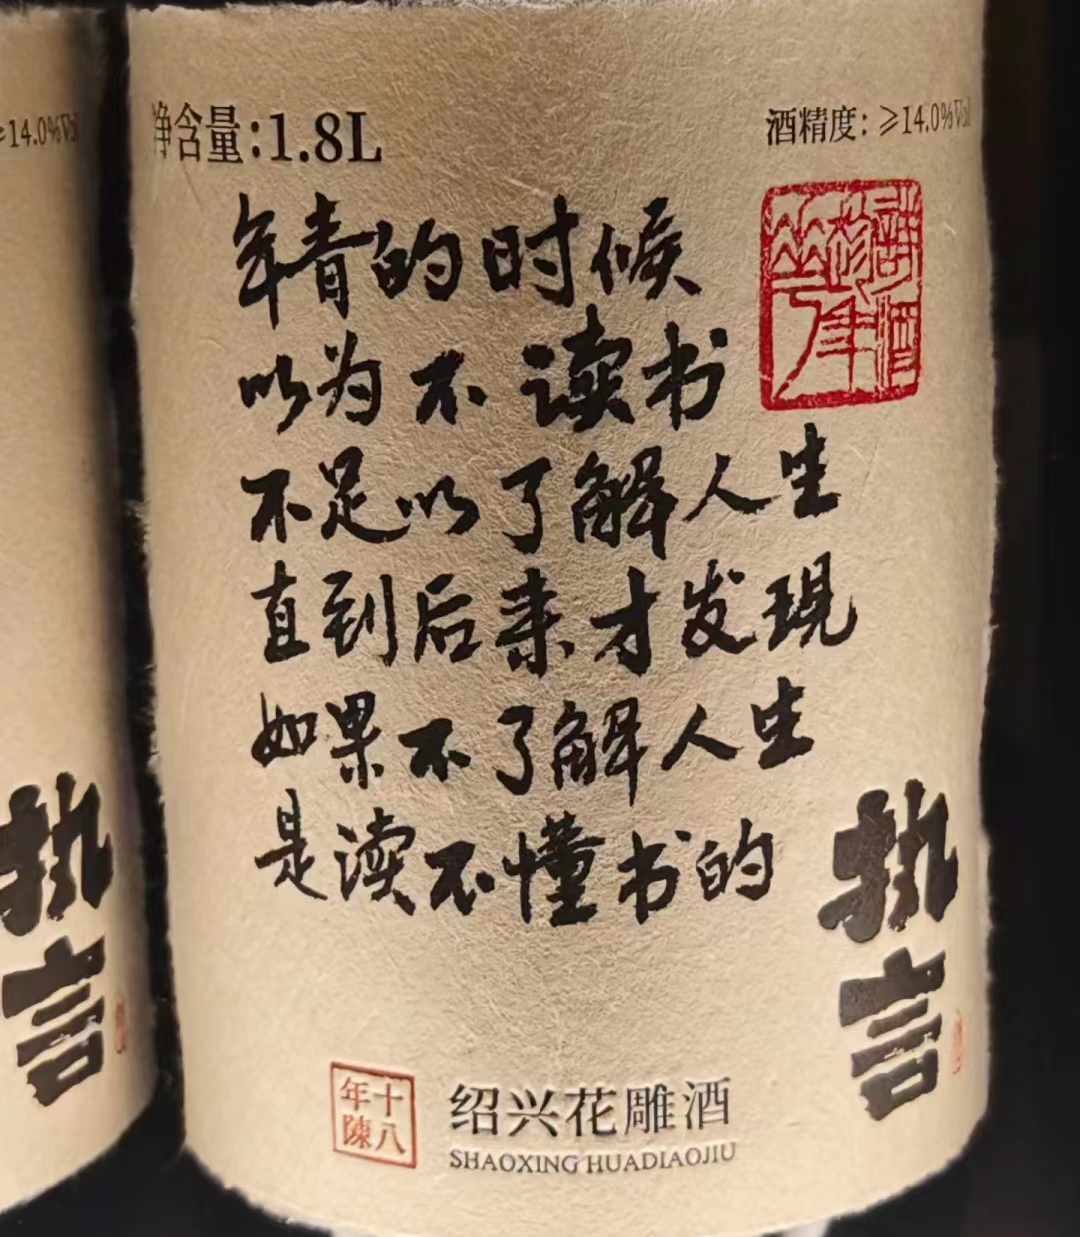 净含量:1.8L
酒精度: ≥14.0%Vol
≥14.0%Vol
年青的时候
以为不读书
不足以了解人生
直到后来才发现
如果不了解人生
是读不懂书的
执言
执言
十八年陳
绍兴花雕酒
SHAOXING HUADIAOJIU